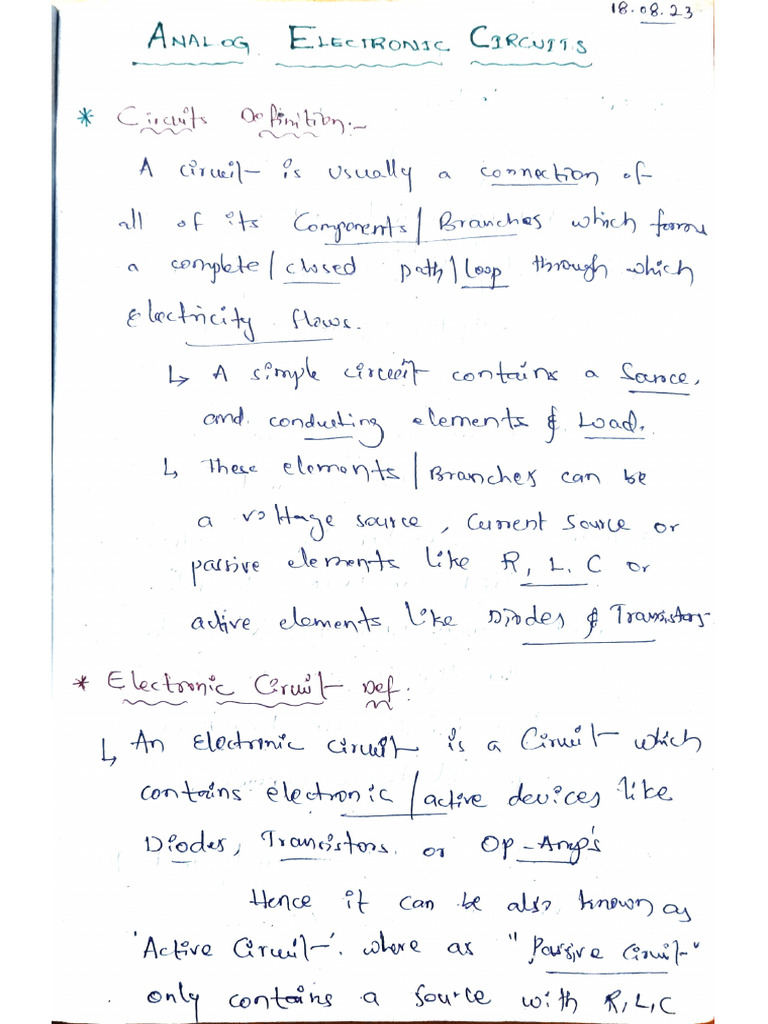 18.08.23
ANALOG ELECTRONIC CIRCUITS
* Circuits Definition:-
A circuit is usually a connection of
all of its Components/Branches which forms
a complete/closed path/loop through which
Electricity flows.
↳ A simple circuit contains a Source,
and conducting elements & Load.
↳ These elements/Branches can be
a voltage source, Current Source or
passive elements like R, L, C or
active elements like Diodes & Transistors
* Electronic Circuit Def:
↳ An Electronic circuit is a Circuit which
contains electronic/active devices like
Diodes, Trancistors or Op-Amp's
Hence it can be also known as
'Active Circuit' where as "Passive Circuit"
only contains a source with R, L, C